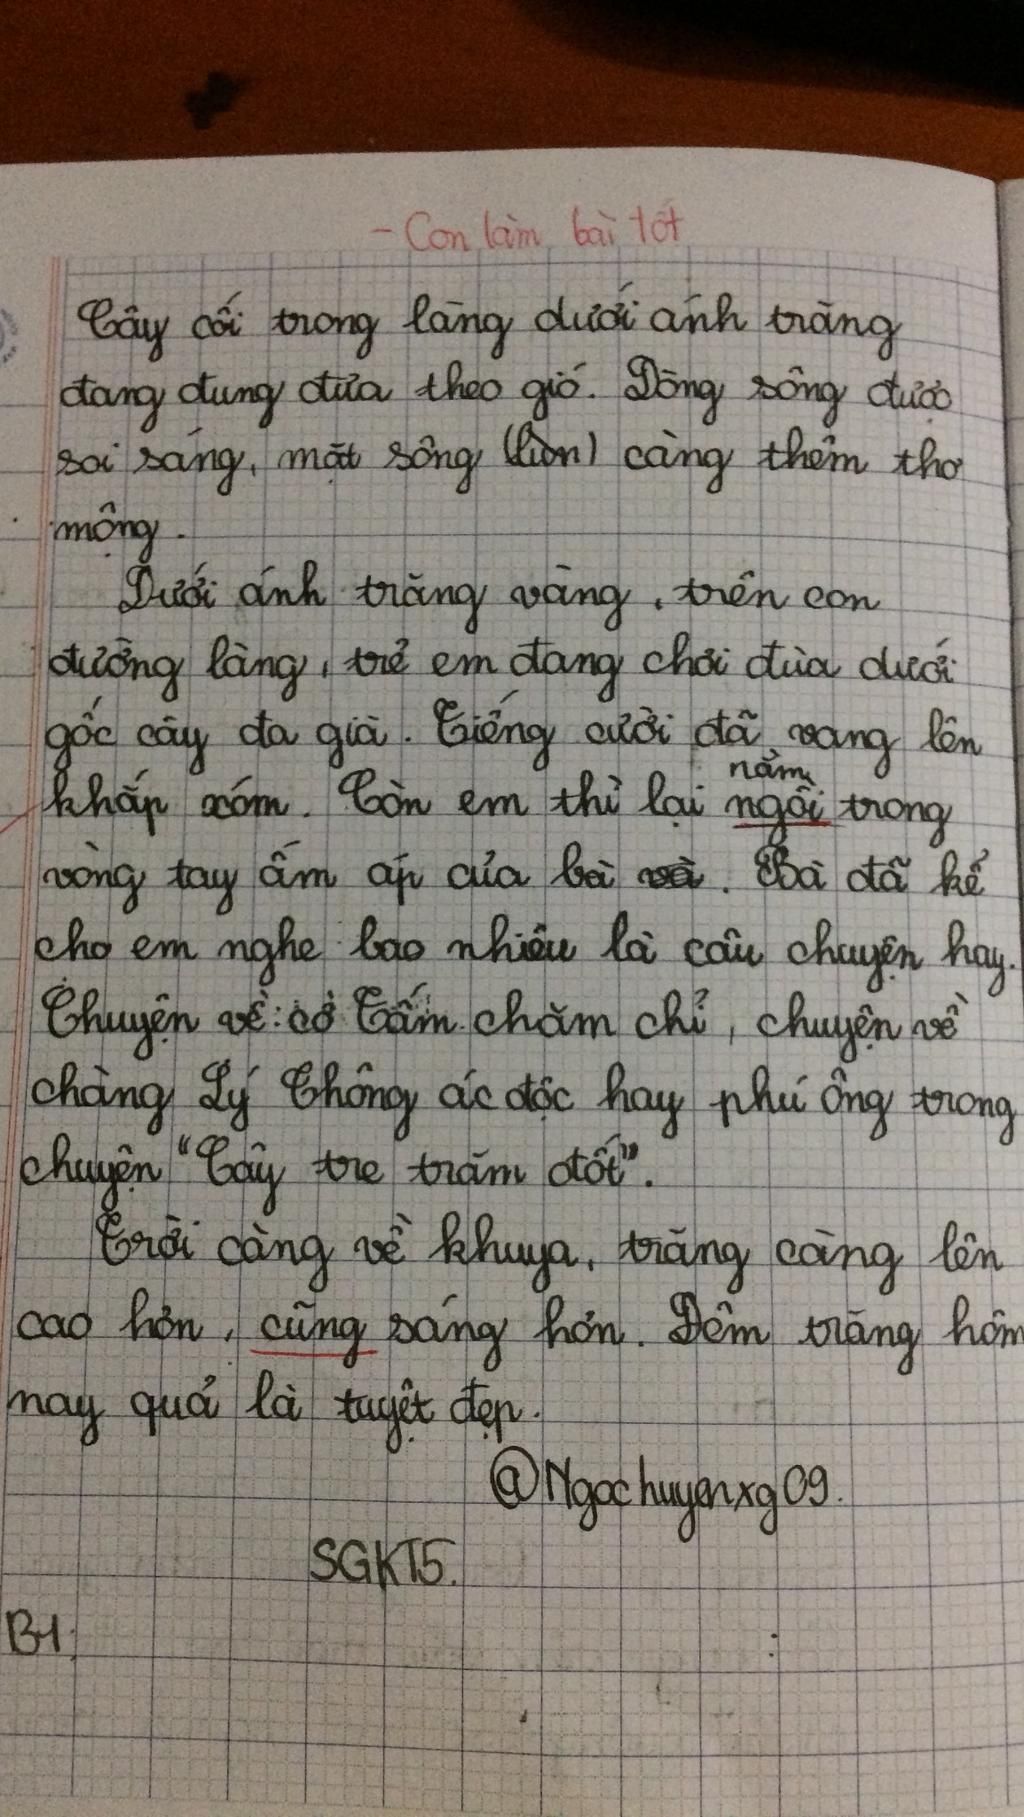 - Con làm bài tốt
Cây cối trong làng dưới ánh trăng
đang đung đưa theo gió. Dòng sông được
soi sáng, mặt sông (lòn) càng thêm thơ
mộng.
Dưới ánh trăng vàng, trên con
đường làng, trẻ em đang chơi đùa dưới
gốc cây đa già. Tiếng cười đã vang lên
nằm
khắp xóm. Còn em thì lại ngồi trong
vòng tay ấm áp của bà và. Bà đã kể
cho em nghe bao nhiêu là câu chuyện hay.
Chuyện về cô Tấm chăm chỉ, chuyện về
chàng Lý Thông ác độc hay phú ông trong
chuyện "Cây tre trăm đốt".
Trời càng về khuya, trăng càng lên
cao hơn, cũng sáng hơn. Đêm trăng hôm
nay quả là tuyệt đẹp.
@Ngochuyenxg09.
SGKT5.
B1: